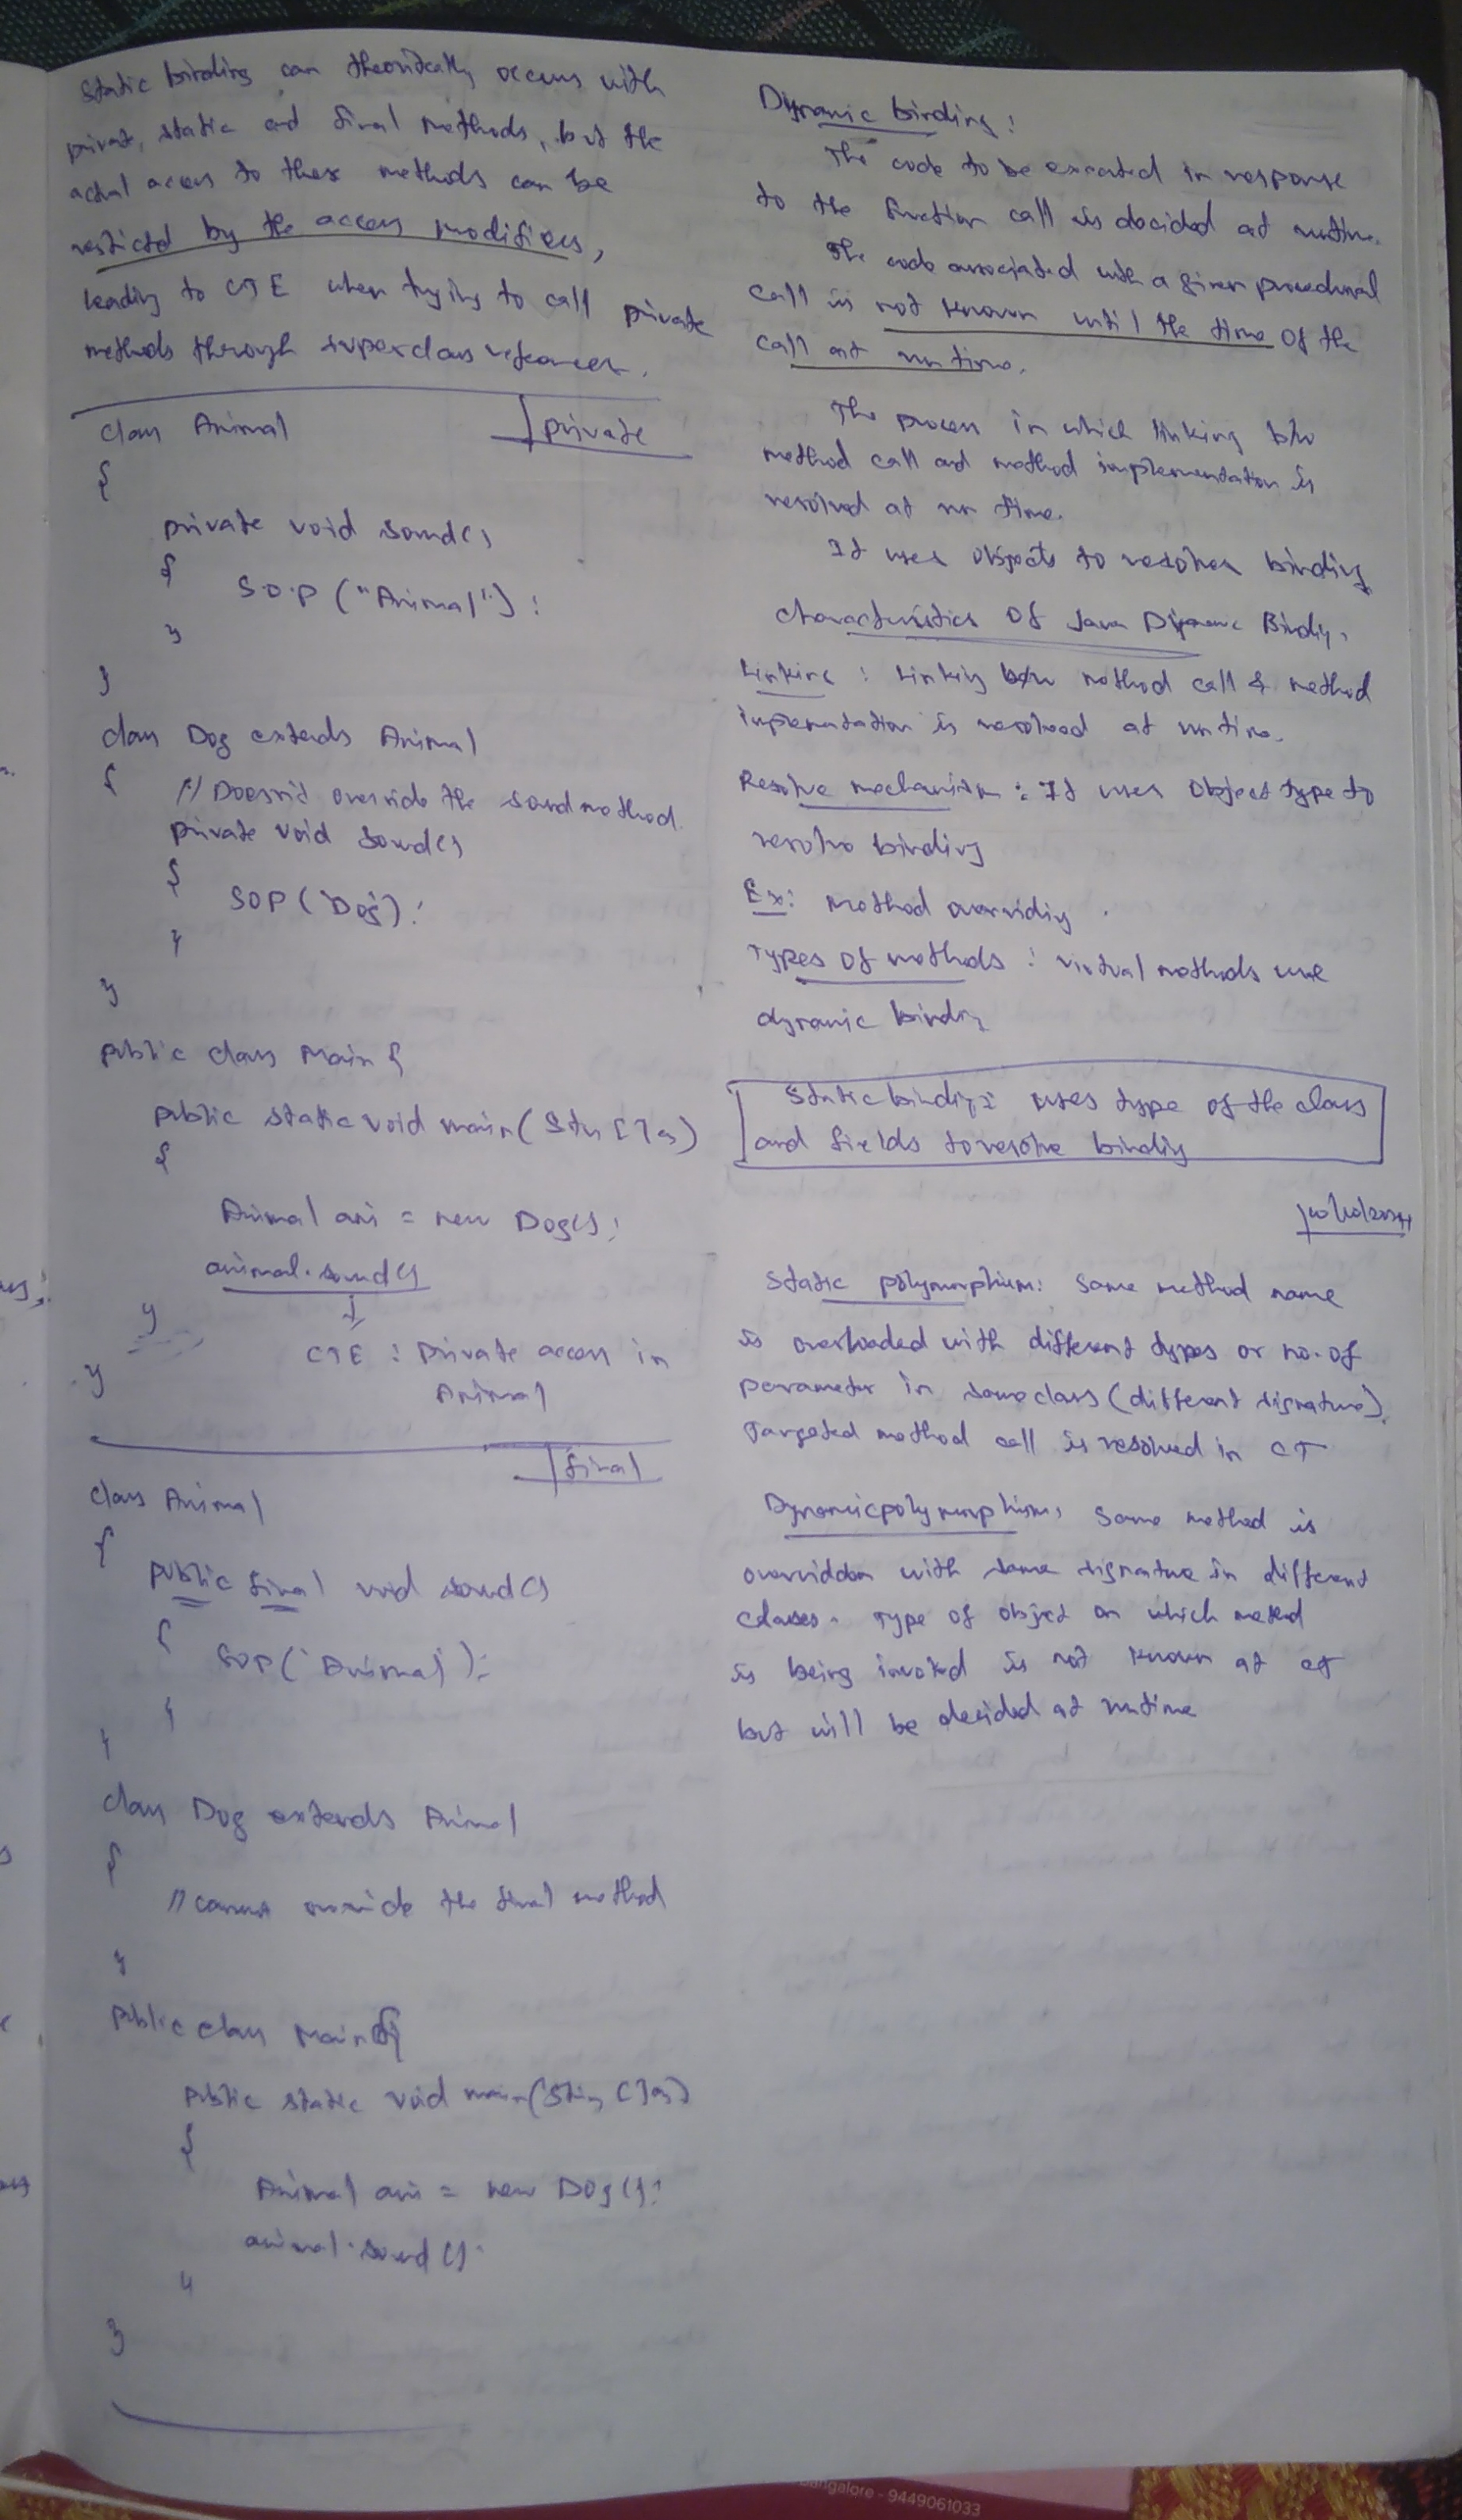 Static binding can theoritically occurs with
private, static and final methods, but the
actual access to these methods can be
resticted by the access modifiers,
leading to CTE when trying to call private
methods through superclass references.
private
class Animal
{
private void sound()
{
S.O.P ("Animal");
}
}
class Dog extends Animal
{
// Doesn't override the sound method.
private void sound()
{
SOP ('Dog');
}
}
public class Main {
public static void main(
{
Animal ani = new Dog();
animal.sound()
}
CTE : Private access in
Animal
}
final
class Animal
{
public final void sound()
{
SOP('Animal');
}
}
class Dog extends Animal
{
// cannot override the final method
}
public class Main {
public static void main(
{
Animal ani = new Dog();
animal.sound();
}
}
Dynamic binding:
The code to be executed in response
to the function call is decided at runtime.
The code associated with a given procedural
call is not known until the time of the
call at run time.
The process in which linking b/w
method call and method implementation is
resolved at run time.
It uses objects to resolves binding
Characteristics of Java Dynamic Binding.
Linking : Linking b/w method call & method
implementation is resolved at runtime.
Resolve mechanism : It uses object type to
resolve binding
Ex: Method overriding
Types of methods : virtual methods use
dynamic binding
Static binding: uses type of the class
and fields to resolve binding
Static polymorphism: Same method name
is overloaded with different types or no. of
parameter in same class (different signature).
Targeted method call is resolved in CT
Dynamic polymorphism: Same method is
overridden with same signature in different
classes. Type of object on which method
is being invoked is not known at CT
but will be decided at runtime
Bangalore - 9449061033